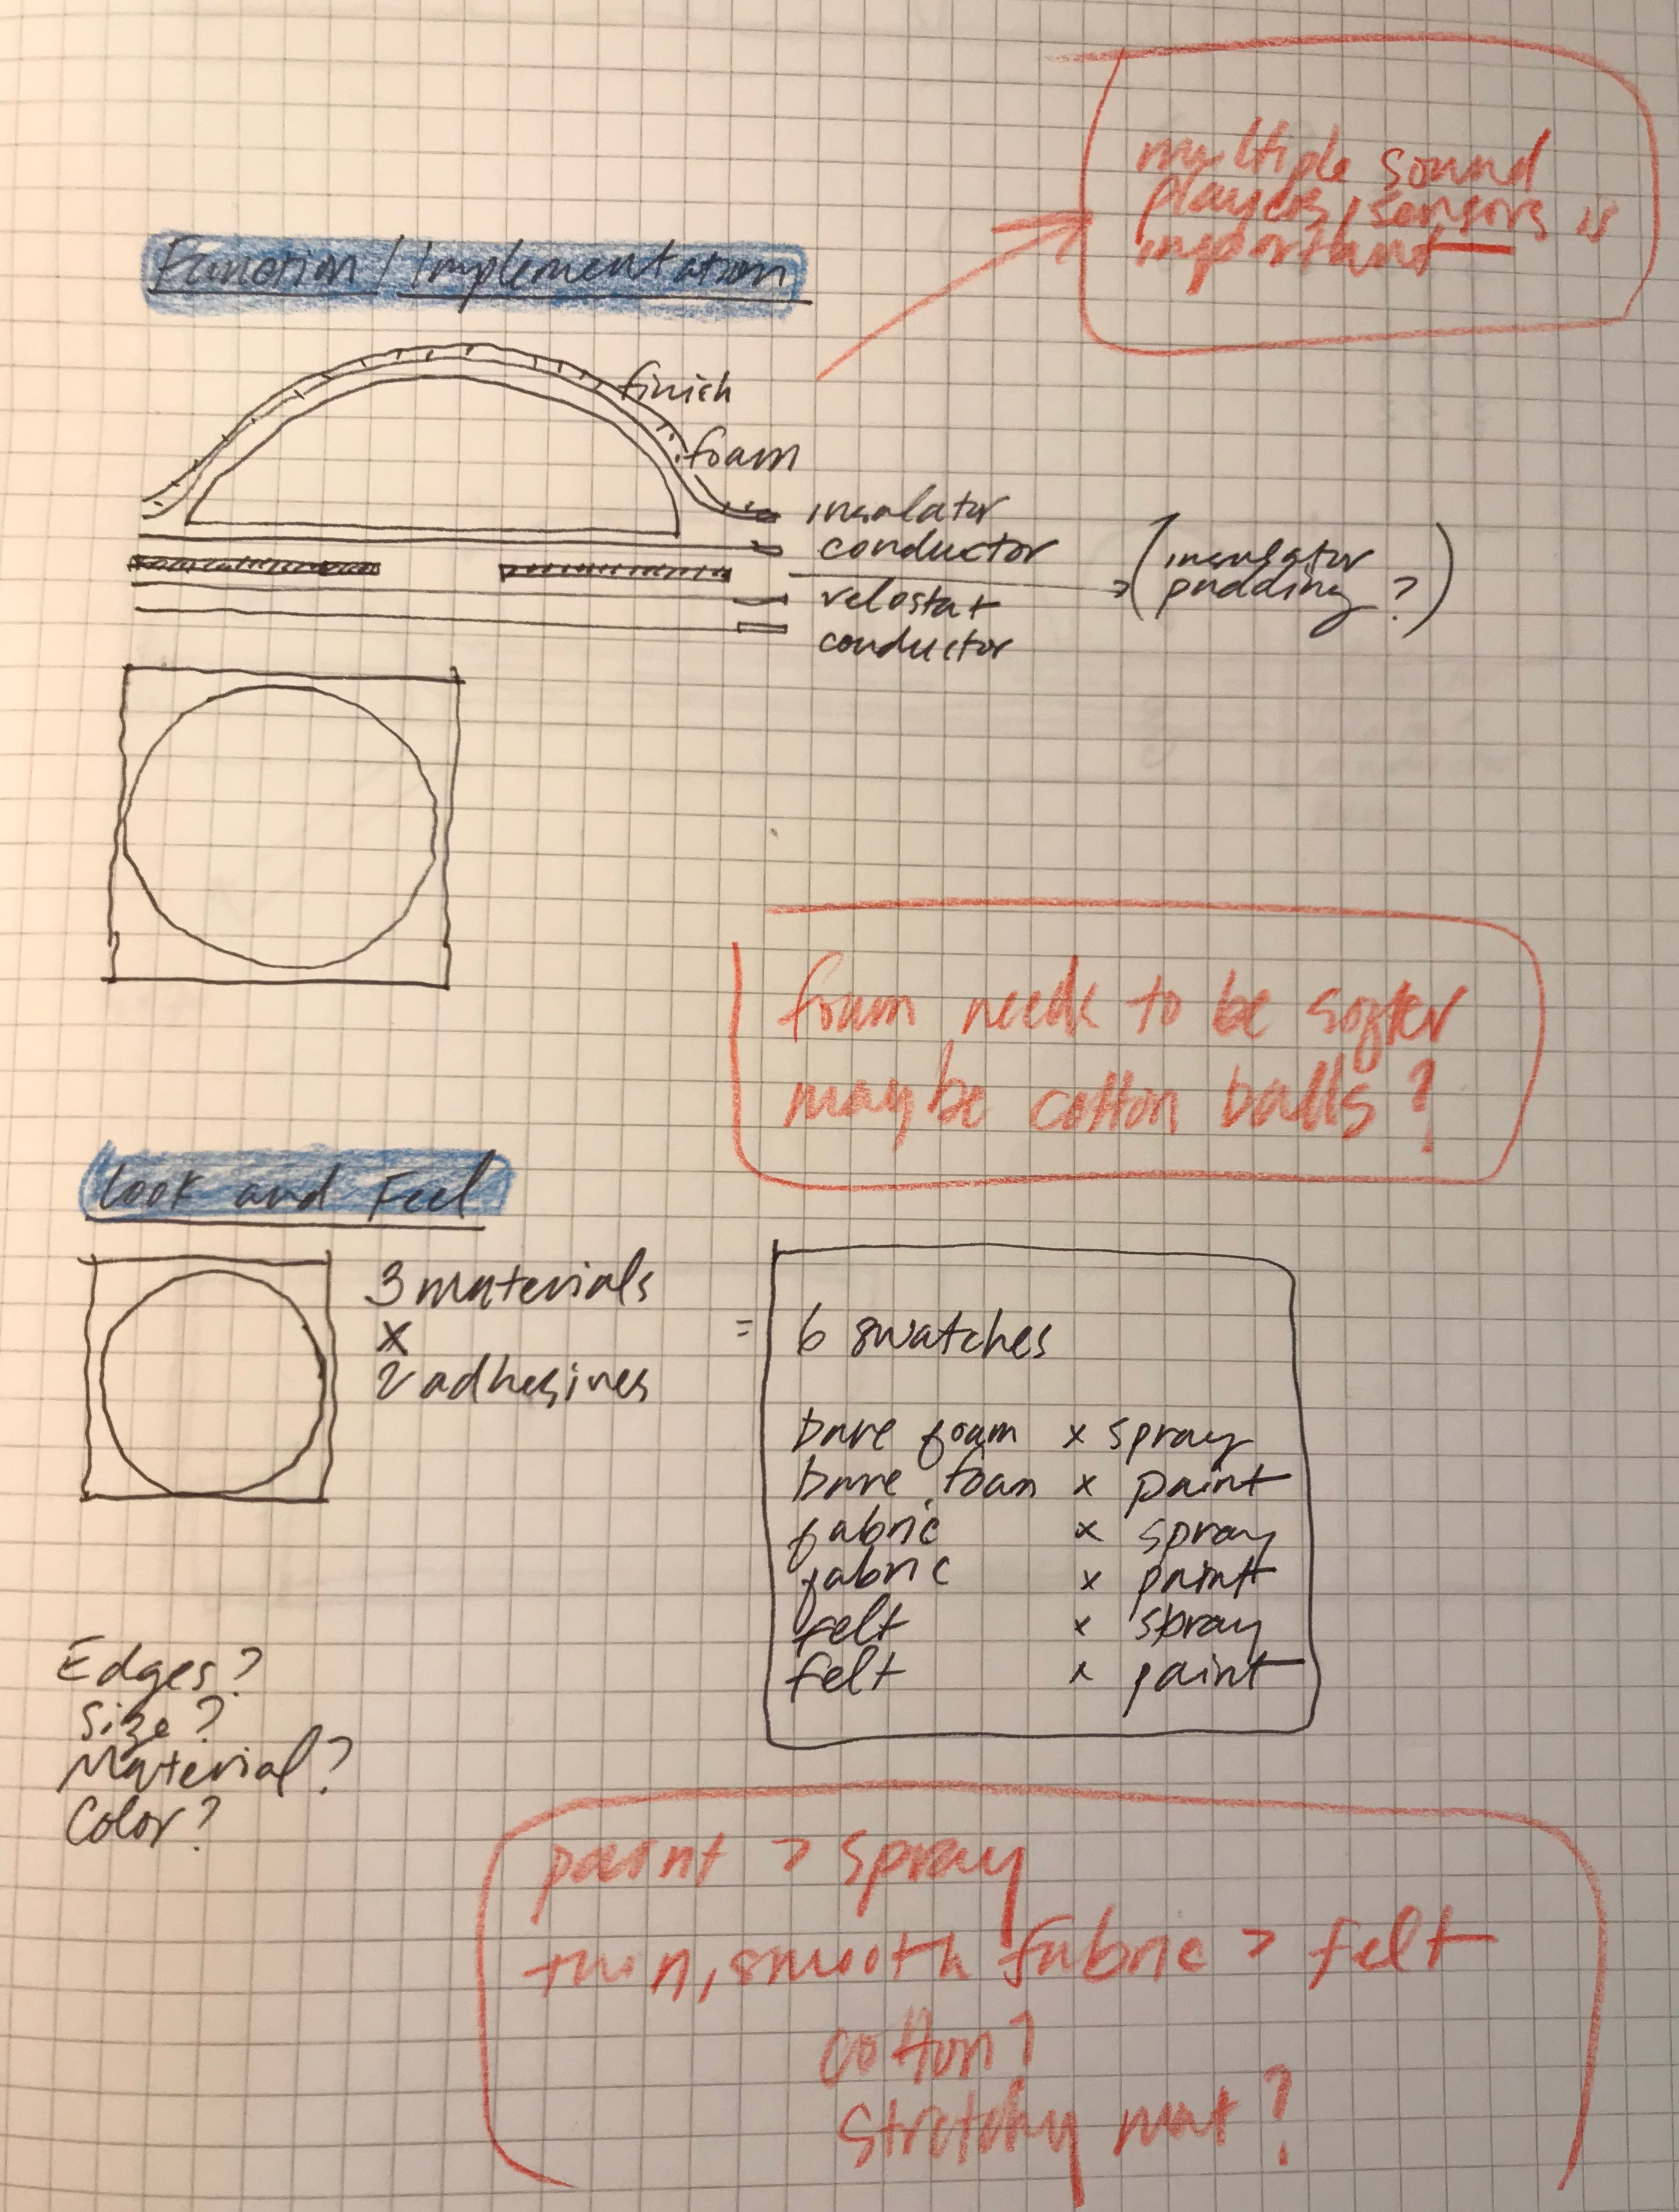 multiple sound
players, sensors is
important
Function / Implementation
finish
foam
insulator
conductor
(insulator
padding?)
velostat
conductor
foam needs to be softer
maybe cotton balls?
Look and Feel
3 materials
x
2 adhesives
=
6 swatches
bare foam x spray
bare foam x paint
fabric x spray
fabric x paint
felt x spray
felt x paint
Edges?
Size?
Material?
Color?
paint > spray
thin, smooth fabric > felt
cotton?
stretchy mat?